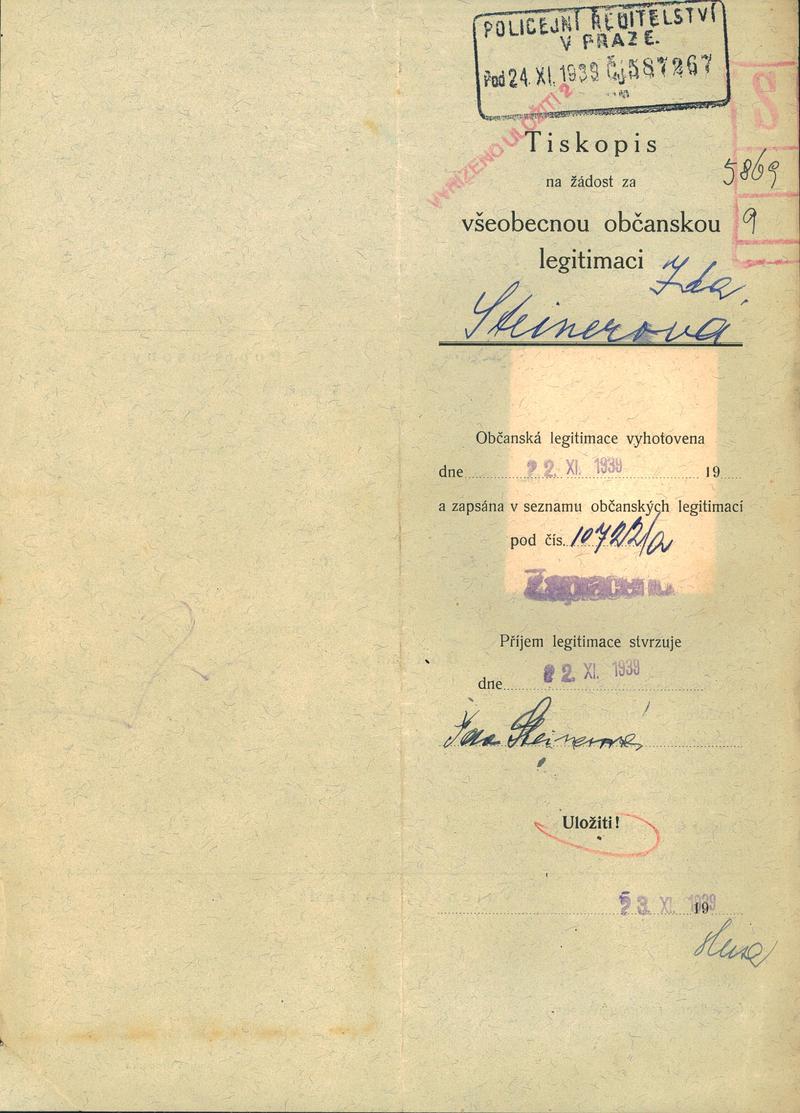 POLICEJNÍ ŘEDITELSTVÍ
V PRAZE.
Pod 24. XI. 1939 Čj 587267
VYŘÍZENO ULOŽITI 2
S
Tiskopis
5869
na žádost za
všeobecnou občanskou
9
legitimaci
Ida
Steinerová
Občanská legitimace vyhotovena
dne 22. XI. 1939 19
a zapsána v seznamu občanských legitimací
pod čís. 10722/a
Zaplaceno
Příjem legitimace stvrzuje
dne 22. XI. 1939
Ida Steinerová
Uložiti!
23. XI. 1939 19